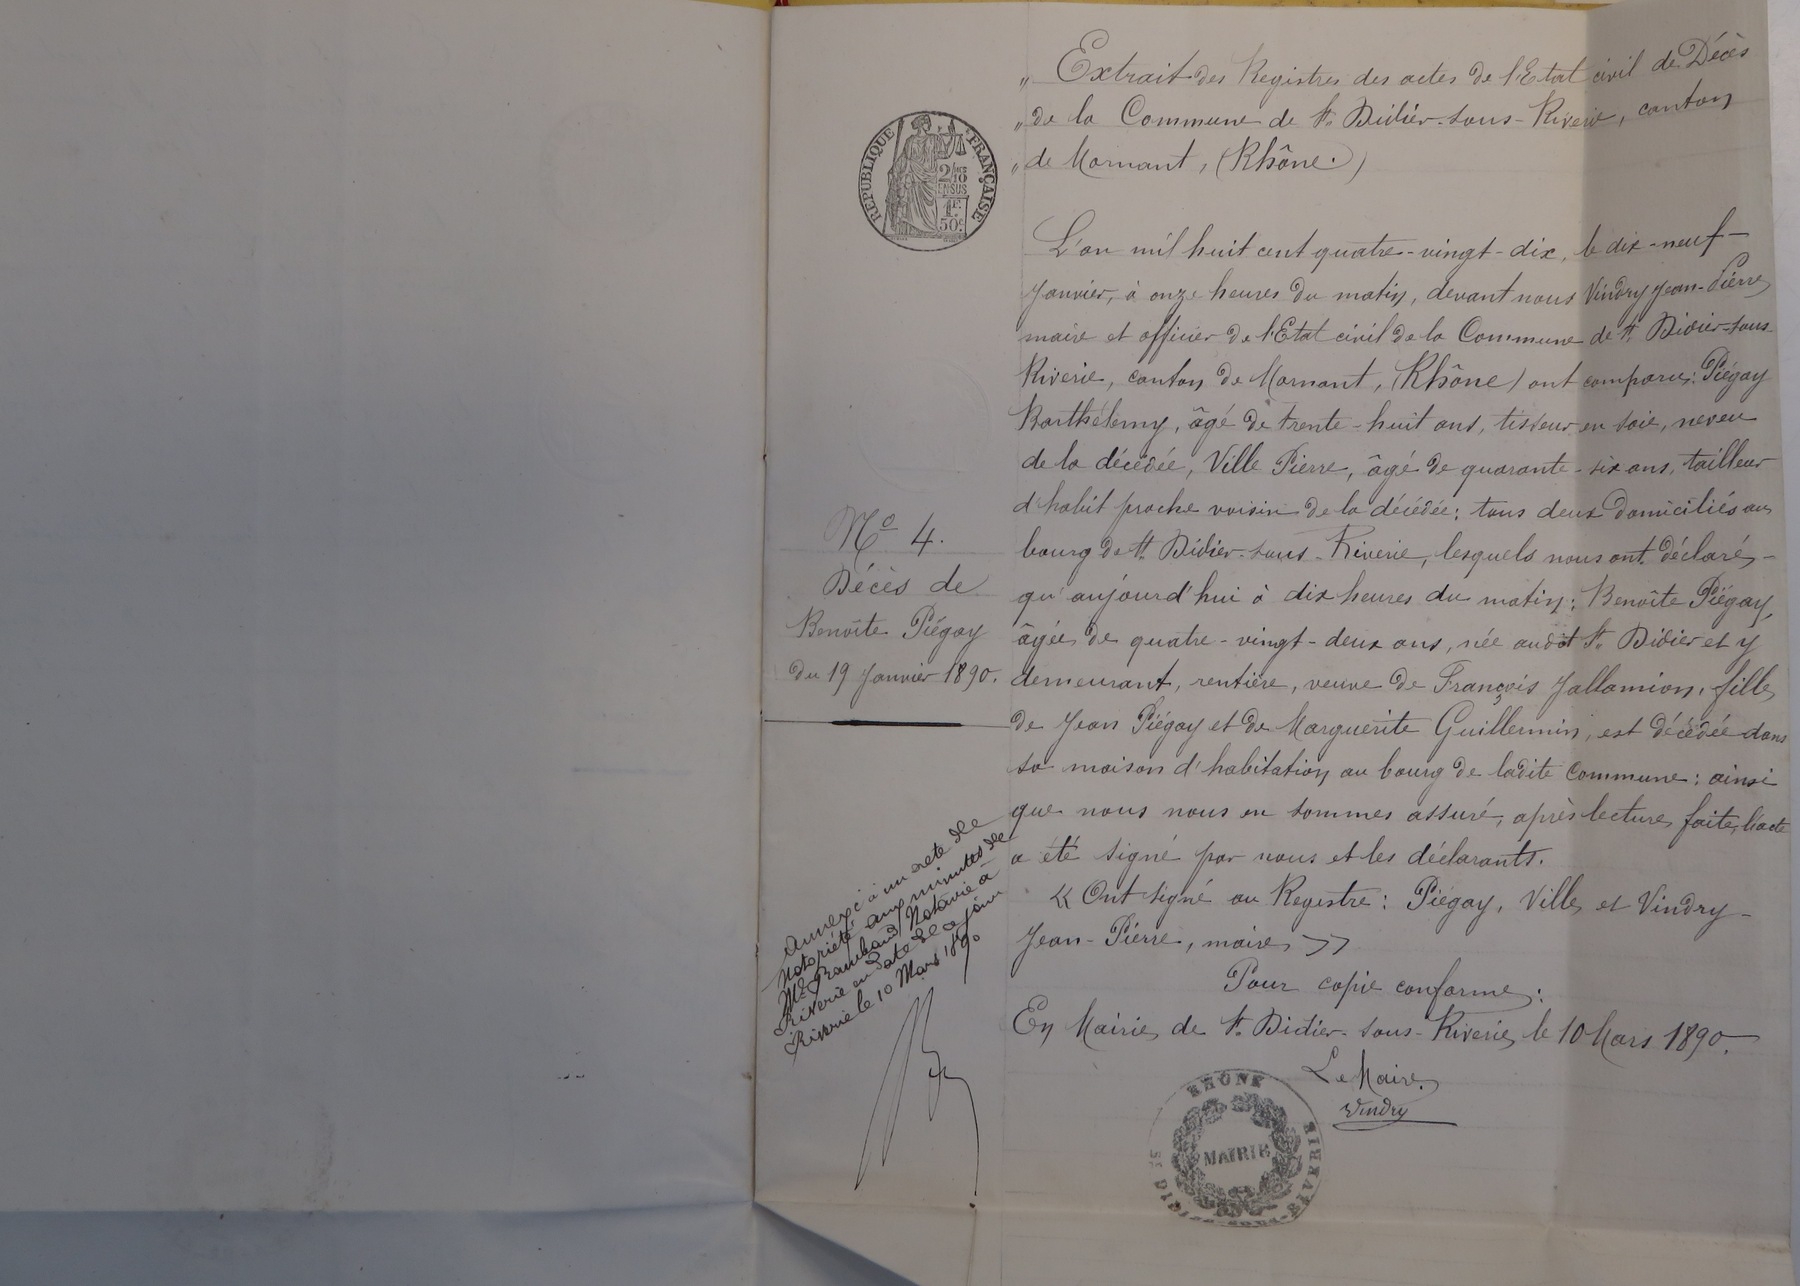 „ Extrait des Registres des actes de l'Etat civil de Décès
„ de la Commune de St. Didier-sous-Riverie, canton
„ de Mornant, (Rhône.)
RÉPUBLIQUE FRANÇAISE
2/10
EN SUS
1F.
50c.
L'an mil huit cent quatre-vingt-dix, le dix-neuf
Janvier, à onze heures du matin, devant nous Vindry Jean-Pierre,
maire et officier de l'Etat civil de la Commune de St. Didier-sous-
Riverie, canton de Mornant, (Rhône) ont comparu: Piégay
Barthélemy, âgé de trente-huit ans, tisseur en soie, neveu
de la décédée, Ville Pierre, âgé de quarante-six ans, tailleur
d'habit proche voisin de la décédée; tous deux domiciliés au
bourg de St. Didier-sous-Riverie, lesquels nous ont déclaré,
qu'aujourd'hui à dix heures du matin; Benoîte Piégay,
âgée de quatre-vingt-deux ans, née audit St. Didier et y
demeurant, rentière, veuve de François Jallamion, fille
de Jean Piégay et de Marguerite Guillermin, est décédée dans
sa maison d'habitation au bourg de ladite Commune; ainsi
que nous nous en sommes assuré, après lecture faite, l'acte
a été signé par nous et les déclarants.
« Ont signé au Registre: Piégay, Ville, et Vindry
Jean-Pierre, maire, »
Pour copie conforme:
En Mairie, de St. Didier-sous-Riverie, le 10 Mars 1890.
Le Maire,
Vindry
No 4.
Décès de
Benoîte Piégay
du 19 Janvier 1890.
Annexé à un acte de
Notoriété aux minutes de
Me Rambaud Notaire à
Riverie en date de ce jour
Riverie le 10 Mars 1890
RHÔNE
MAIRIE
ST DIDIER-SOUS-RIVERIE